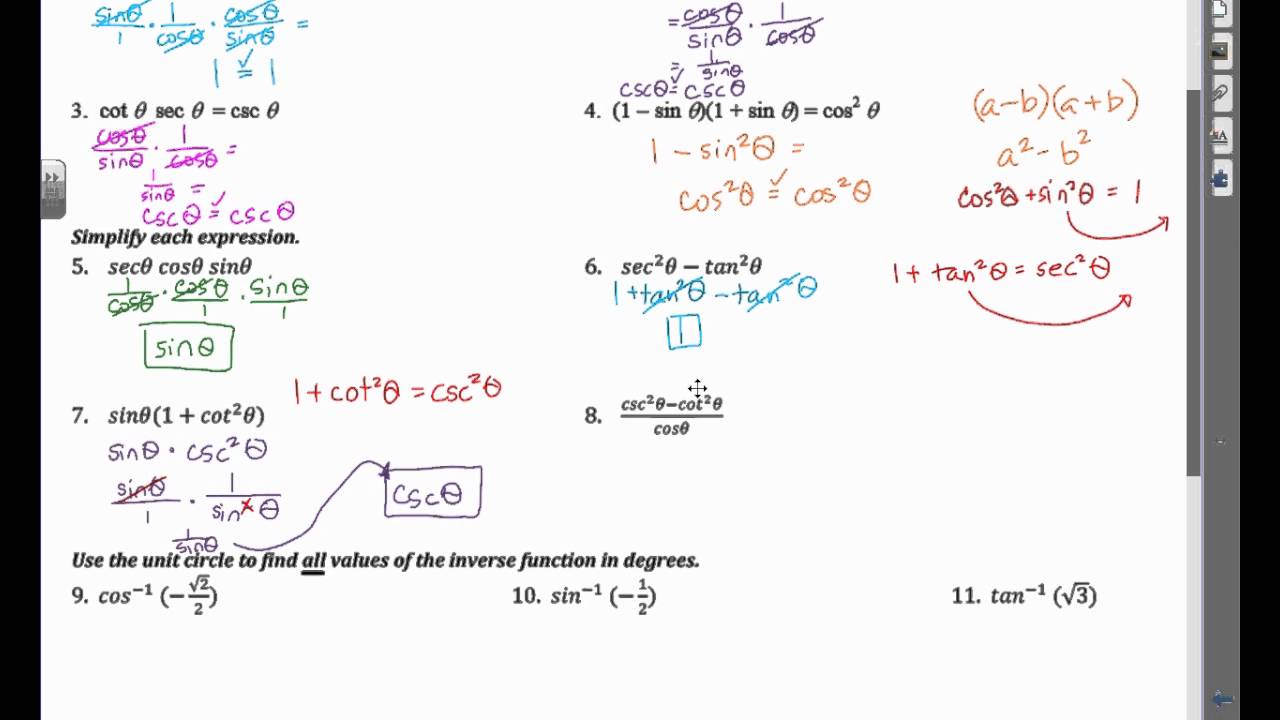 sinθ/1 · 1/cosθ · cosθ/sinθ =
1 = 1
= cosθ/sinθ · 1/cosθ
= 1/sinθ
cscθ = cscθ
3. cot θ sec θ = csc θ
cosθ/sinθ · 1/cosθ =
1/sinθ =
cscθ = cscθ
4. (1 − sin θ)(1 + sin θ) = cos² θ
1 − sin²θ =
cos²θ = cos²θ
(a−b)(a+b)
a² − b²
cos²θ + sin²θ = 1
Simplify each expression.
5. secθ cosθ sinθ
1/cosθ · cosθ/1 · sinθ/1
sinθ
6. sec²θ − tan²θ
1 + tan²θ − tan²θ
1
1 + tan²θ = sec²θ
1 + cot²θ = csc²θ
7. sinθ(1 + cot²θ)
sinθ · csc²θ
sinθ/1 · 1/sin²θ
1/sinθ
cscθ
8. csc²θ−cot²θ/cosθ
Use the unit circle to find all values of the inverse function in degrees.
9. cos⁻¹ (−√2/2)
10. sin⁻¹ (−1/2)
11. tan⁻¹ (√3)